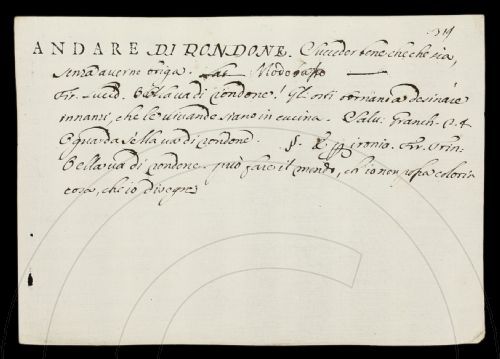 314
ANDARE DI RONDONE. Succeder bene che che sia,
senza averne briga. Lat.
Fir. Lucid. Ella va di rondone. Gli osti torniano a desinare
innanzi, che le vivande siano in cucina. Salv. Granch. 2. 4
E guarda s'ella va di rondone. §. Per ironia. Fir. Trin.
Bella va di rondone. può fare il mondo, ch'io non possa colorir
cosa, che io disegni